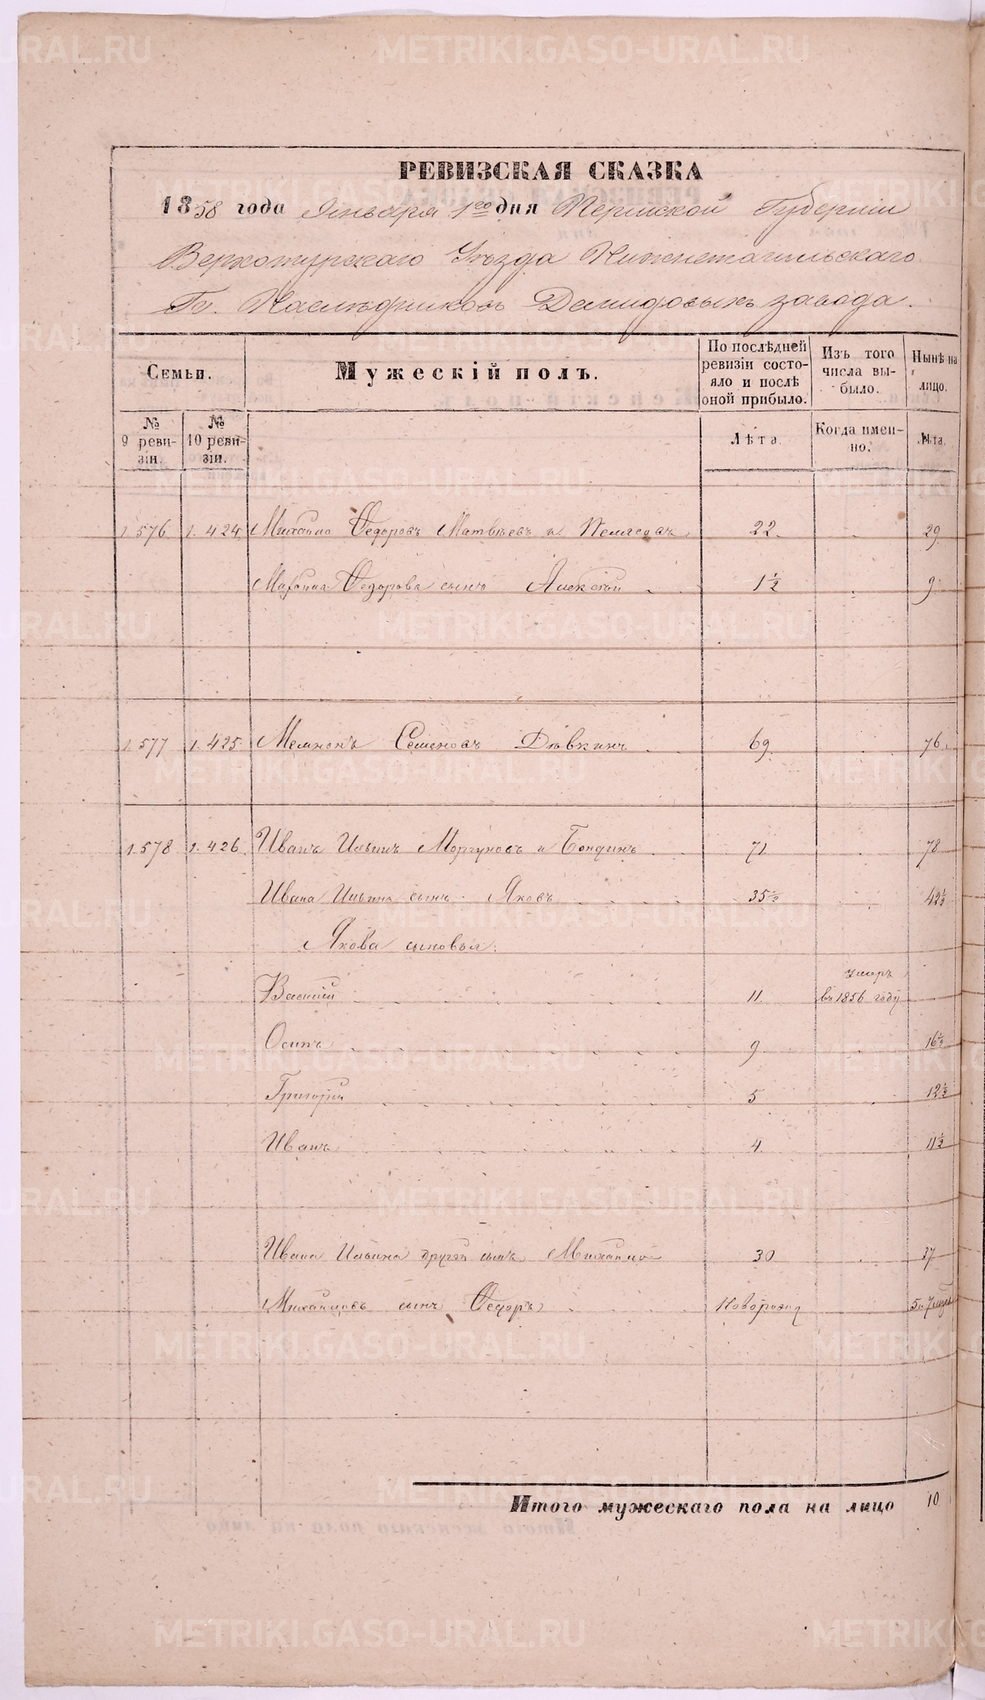 РЕВИЗСКАЯ СКАЗКА
1858 года Января 1го дня Пермской Губернии
Верхотурскаго Уѣзда Нижнетагильскаго
Гг. Наслѣдниковъ Демидовыхъ завода.
Семьи.
Мужескій полъ.
По послѣдней ревизіи состояло и послѣ оной прибыло.
Изъ того числа выбыло.
Нынѣ на лицо.
№ 9 ревизіи.
№ 10 ревизіи.
Лѣта.
Когда именно.
Лѣта.
1.576 1.424 Михайло Ѳедоровъ Матвѣевъ и 22. 29
Ѳедорова сынъ Алексѣй 1½ 9
1.577 1.425 Мемнонъ Семеновъ Дѣвкинъ 69 76
1.578 1.426 Иванъ Ильинъ Моргуновъ и Бондинъ 71 78
Ивана Ильина сынъ Яковъ 35½ 42½
Якова сыновья:
Василій 11 умеръ въ 1856 году
Осипъ 9 16½
Григорій 5 12½
Иванъ 4 11½
Ивана Ильина другой сынъ Михайло 30 37
Михайловъ сынъ Ѳедоръ новорожд
Итого мужескаго пола на лицо 10
METRIKI.GASO-URAL.RU